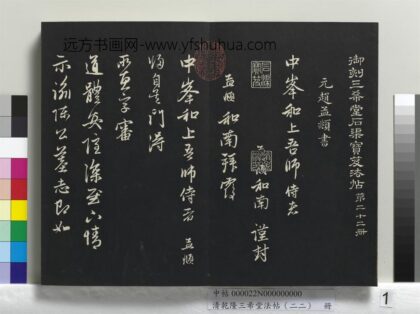 远方书画网-www.yfshuhua.com
御刻三希堂石渠寶笈法帖 第二十二冊
元趙孟頫書
中峯和上吾師侍者
孟頫和南謹封
孟頫和南拜覆
中峯和上吾師侍者 孟頫
悔自
門得
西還
審
道體安隱深慰下情
示諭陸公墓志即如
中帖 000022N000000000
清乾隆三希堂法帖(二二) 冊
1